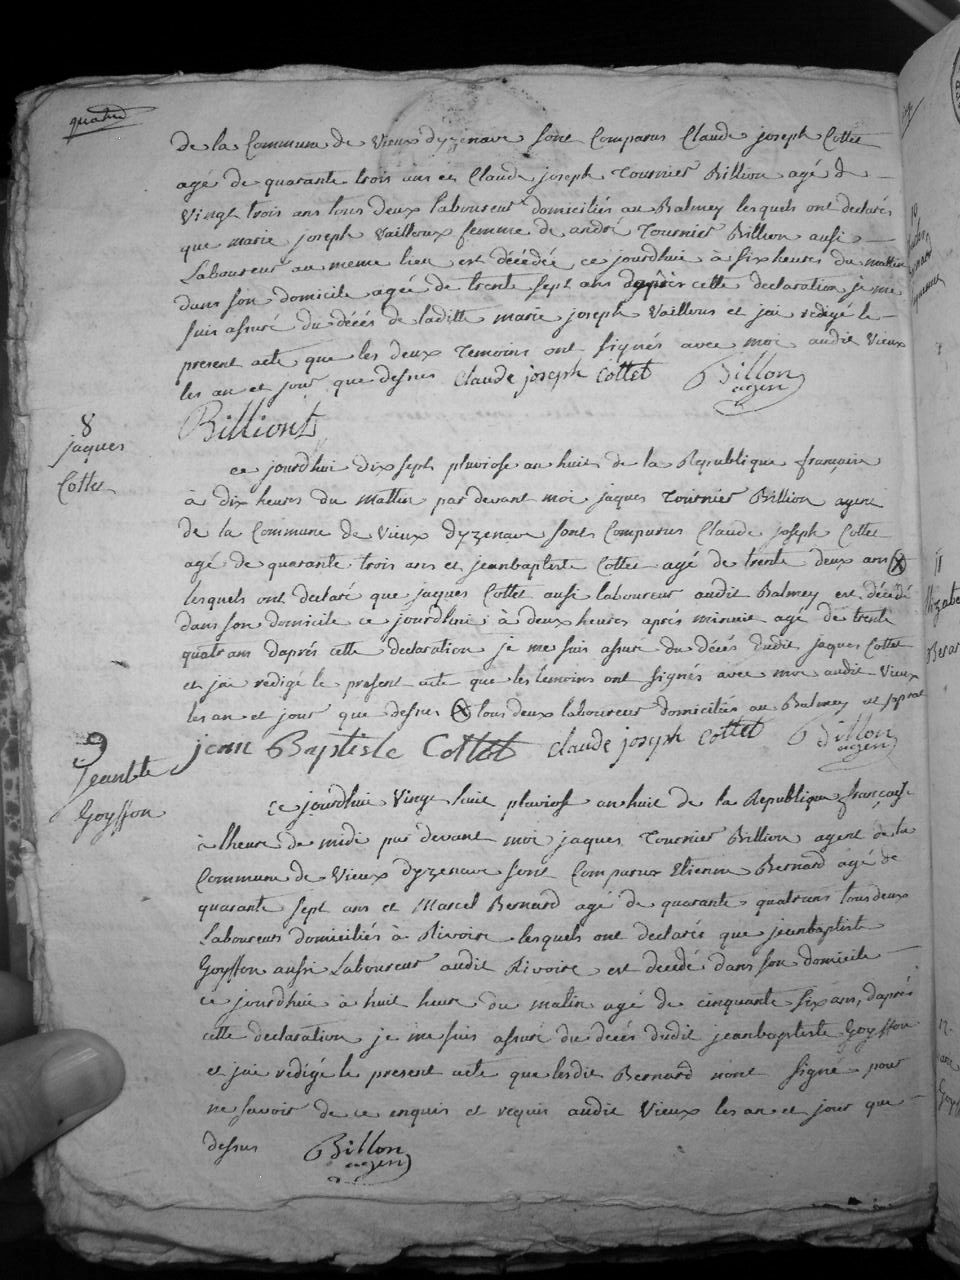 de la Commune de Vieux dyzenave sont Comparus Claude joseph Cottet
agé de quarante trois ans et Claude joseph Tournier Billion agé de
Vingt trois ans tous deux laboureur domiciliés au Balmey lesquels ont declarés
que marie joseph Vailloux femme de andré Tournier Billion aussi
Laboureur au meme lieu est décédée ce jourdhui à six heures du mattin
dans son domicile agée de trente sept ans daprès cette declaration je me
suis assuré du décés de laditte marie joseph Vailloux et jai rédigé le
present acte que les deux temoins ont signés avec moi audit Vieux
les an et jour que dessus Claude joseph Cottet Billon
agen
Billiont
8
jaques
Cottet
ce jourdhui dix sept pluviose an huit de la Republique française
à dix heures du mattin par devant moi jaques Tournier Billion agent
de la Commune de Vieux dyzenave sont Comparus Claude joseph Cottet
agé de quarante trois ans et jeanbaptiste Cottet agé de trente deux ans
lesquels ont declaré que jaques Cottet aussi laboureur audit Balmey est décédé
dans son domicile ce jourdhui à deux heures après minuit agé de trente
quatr ans daprés cette declaration je me suis assuré du décés dudit jaques Cottet
et jai rédigé le present acte que les temoins ont signés avec moi audit Vieux
les an et jour que dessus tous deux laboureur domiciliés au Balmey
jean Baptiste Cottet Claude joseph Cottet Billon
agen
9
jeanbte
Goyffon
Ce jourdhui Vingt huit pluviose an huit de la Republique française
à lheure de midi par devant moi jaques Tournier Billion agent de la
Commune de Vieux dyzenave sont Comparux Etienne Bernard agé de
quarante sept ans et Marcel Bernard agé de quarante quatrans tous deux
Laboureurs domiciliés à Rivoire lesquels ont declarés que jeanbaptiste
Goyffon aussi Laboureur audit Rivoire est decedé dans son domicile
ce jourdhui à huit heure du matin agé de cinquante six ans, daprés
cette declaration je me suis assuré du decés dudit jeanbaptiste Goyffon
et jai rédigé le present acte que lesdit Bernard nont signé pour
ne savoir de ce enquis et requis audit Vieux les an et jour que
dessus Billon
agen